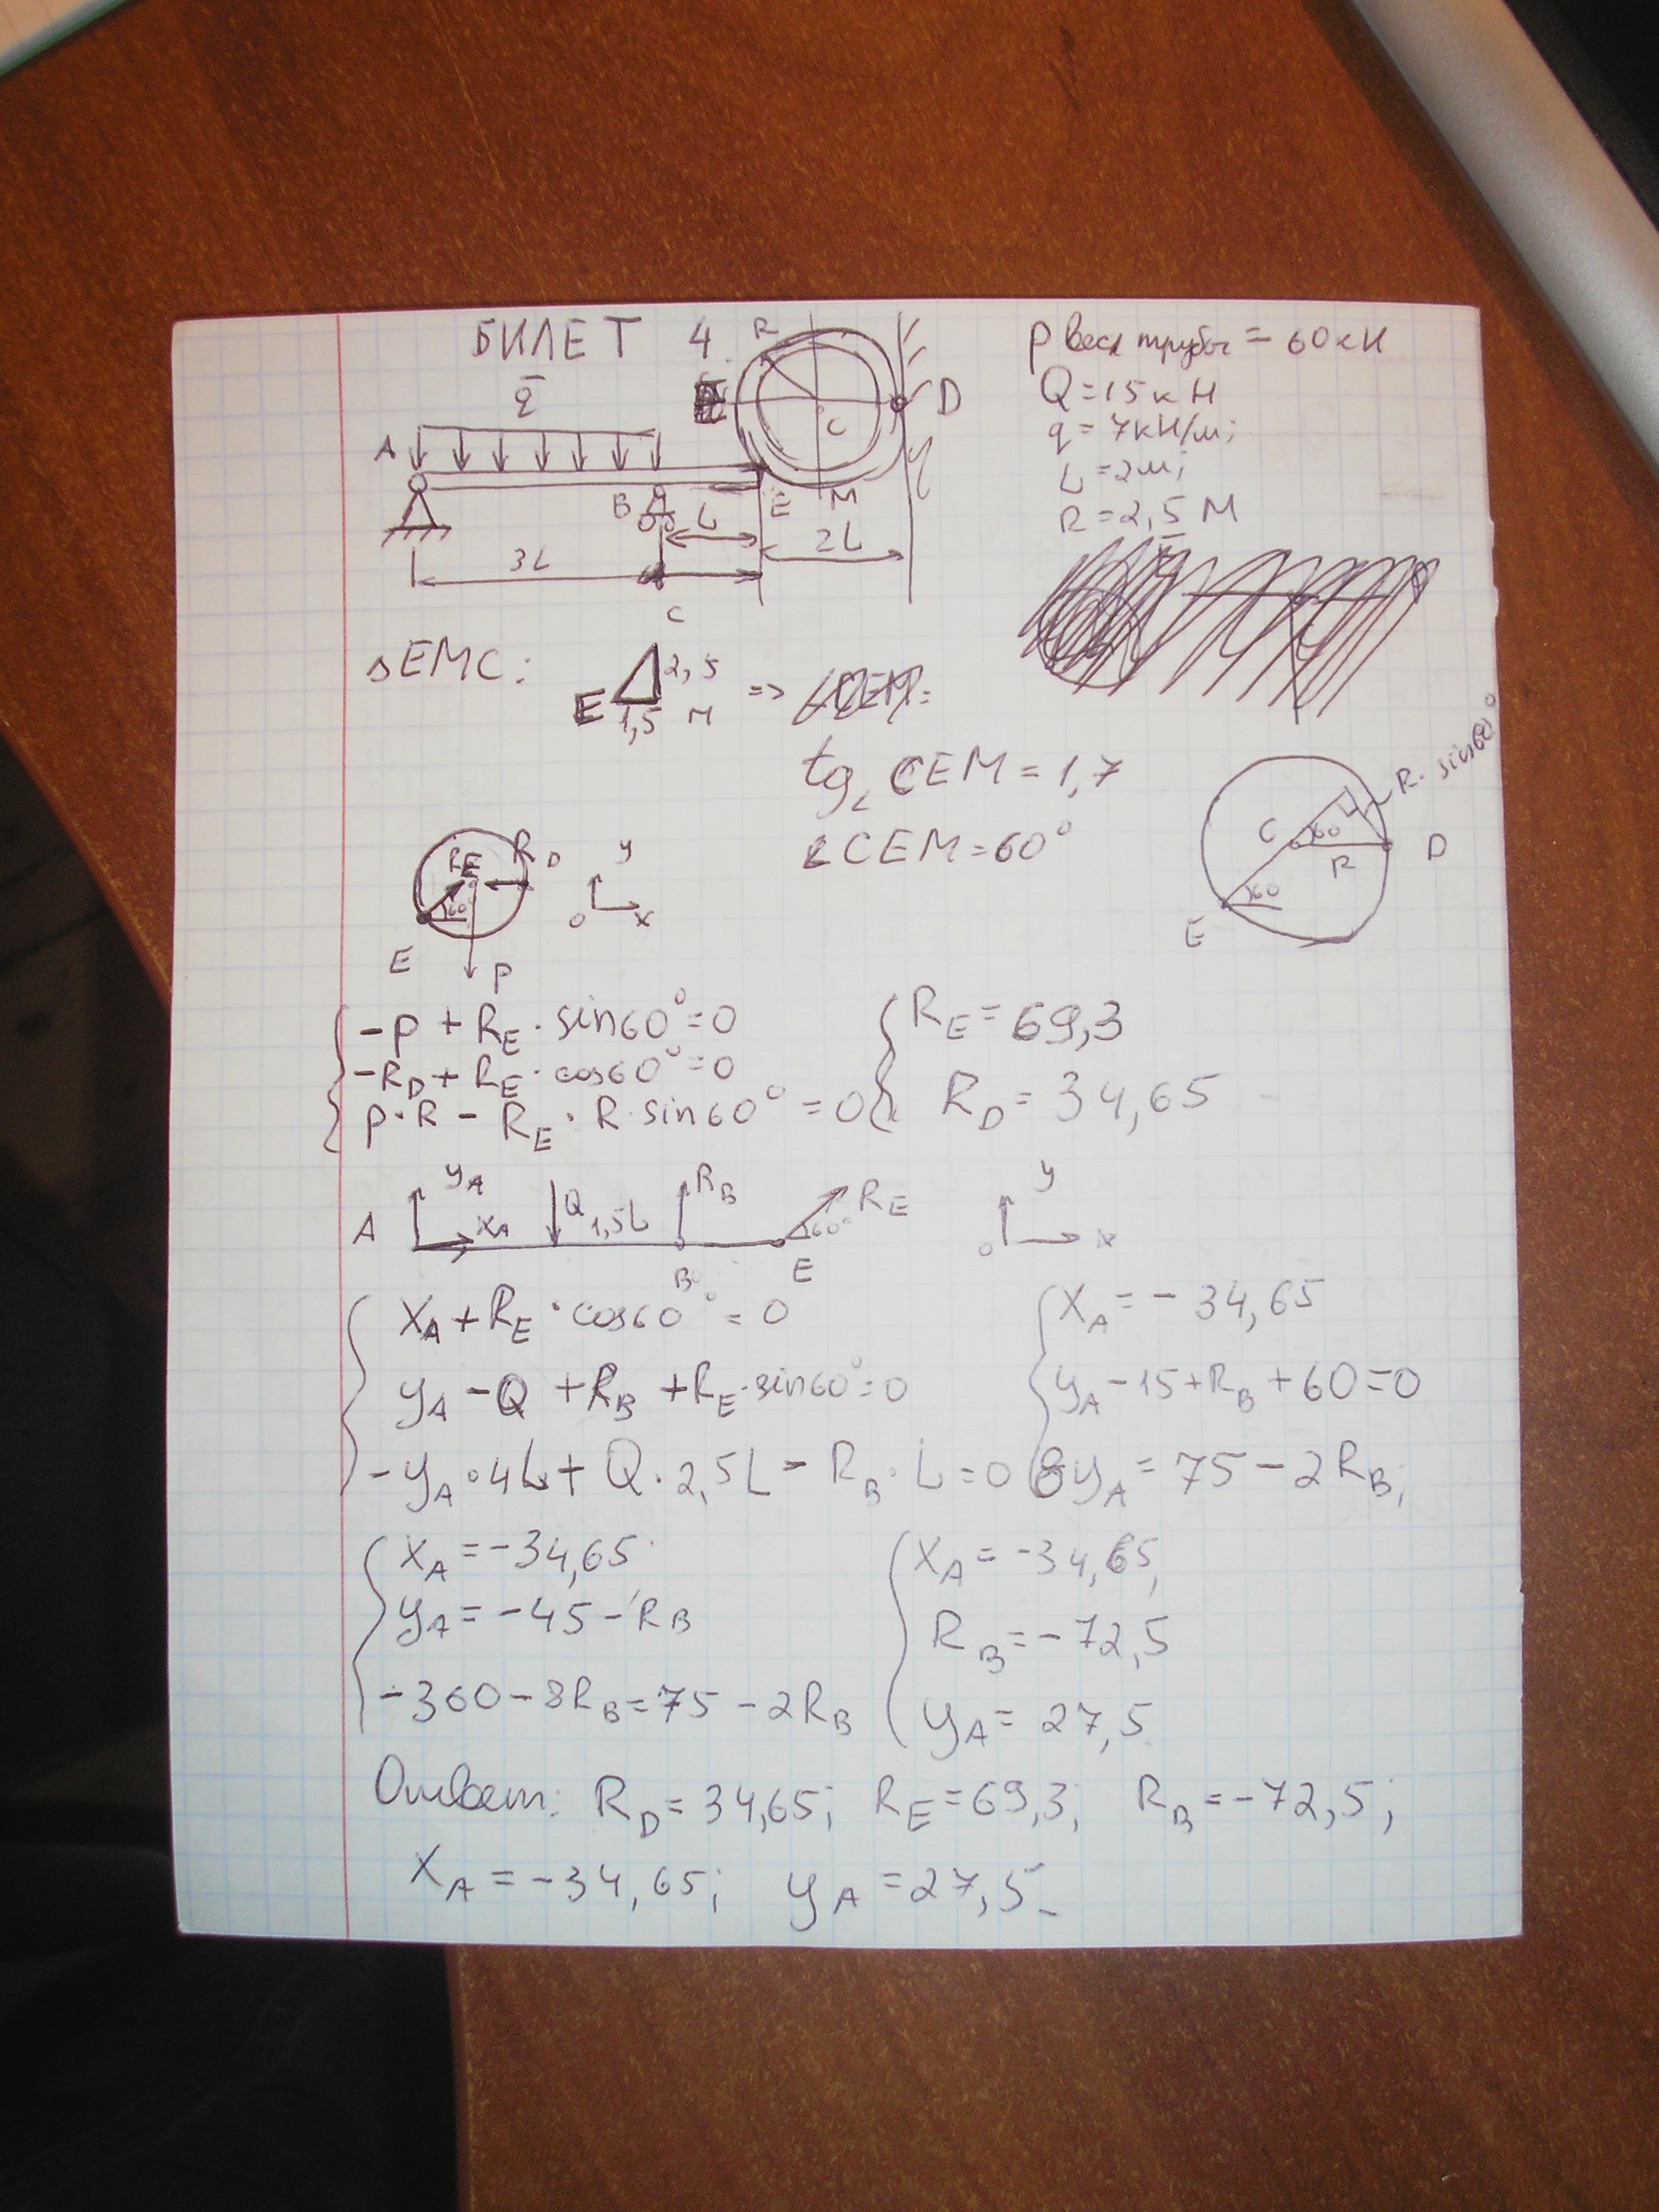 БИЛЕТ 4.
P вес трубы = 60 кН
Q = 15 кН
q = 7 кН/м;
L = 2м;
R = 2,5 М
q
R
A
C
D
B
L
E
M
2L
3L
C
ΔEMC:
E
2,5
1,5 M
=>
tg∠CEM = 1,7
∠CEM = 60°
R · sin60°
C
60
R
D
60
E
R_E
R_D
60
E
P
y
O
x
-P + R_E · sin60° = 0
-R_D + R_E · cos60° = 0
P·R - R_E · R·sin60° = 0
R_E = 69,3
R_D = 34,65
A
y_A
x_A
Q
1,5L
R_B
R_E
60°
B
E
y
O
x
x_A + R_E · cos60° = 0
y_A - Q + R_B + R_E·sin60° = 0
-y_A·4L + Q·2,5L - R_B·L = 0
x_A = -34,65
y_A - 15 + R_B + 60 = 0
8y_A = 75 - 2R_B;
x_A = -34,65
y_A = -45 - R_B
-360 - 8R_B = 75 - 2R_B
x_A = -34,65;
R_B = -72,5
y_A = 27,5
Ответ: R_D = 34,65; R_E = 69,3; R_B = -72,5;
x_A = -34,65; y_A = 27,5